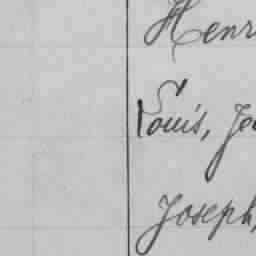 Henr
Louis, Je
Joseph,